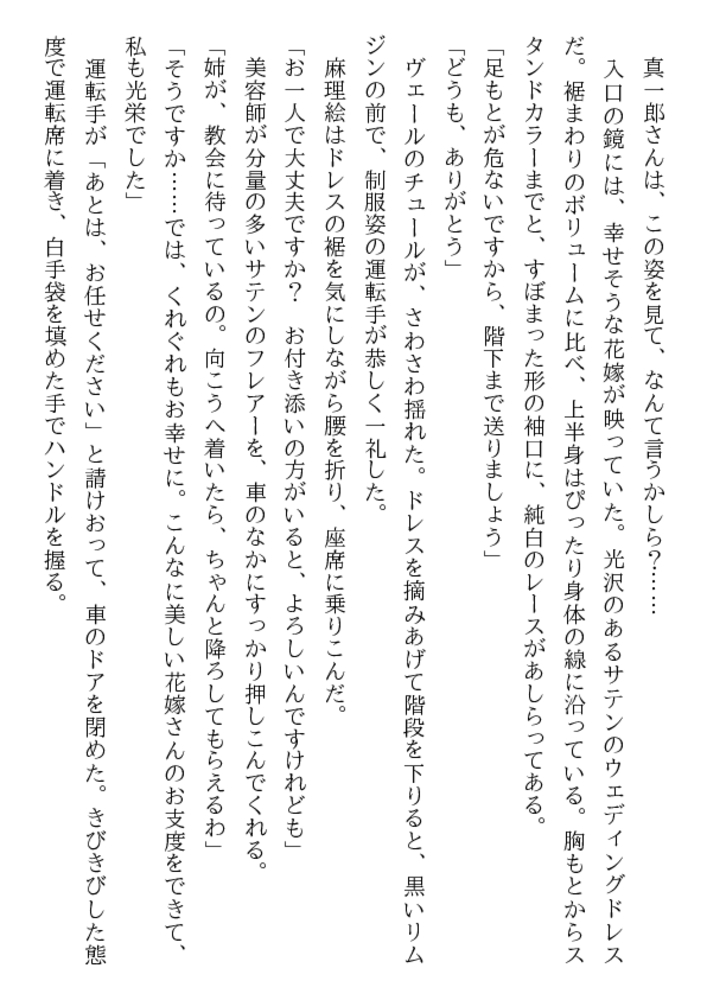 真一郎さんは、この姿を見て、なんて言うかしら?……
入口の鏡には、幸せそうな花嫁が映っていた。光沢のあるサテンのウェディングドレス
だ。裾まわりのボリュームに比べ、上半身はぴったり身体の線に沿っている。胸もとからス
タンドカラーまでと、すぼまった形の袖口に、純白のレースがあしらってある。
「足もとが危ないですから、階下まで送りましょう」
「どうも、ありがとう」
ヴェールのチュールが、さわさわ揺れた。ドレスを摘みあげて階段を下りると、黒いリム
ジンの前で、制服姿の運転手が恭しく一礼した。
麻理絵はドレスの裾を気にしながら腰を折り、座席に乗りこんだ。
「お一人で大丈夫ですか? お付き添いの方がいると、よろしいんですけれども」
美容師が分量の多いサテンのフレアーを、車のなかにすっかり押しこんでくれる。
「姉が、教会に待っているの。向こうへ着いたら、ちゃんと降ろしてもらえるわ」
「そうですか……では、くれぐれもお幸せに。こんなに美しい花嫁さんのお支度をできて、
私も光栄でした」
運転手が「あとは、お任せください」と請けおって、車のドアを閉めた。きびきびした態
度で運転席に着き、白手袋を填めた手でハンドルを握る。